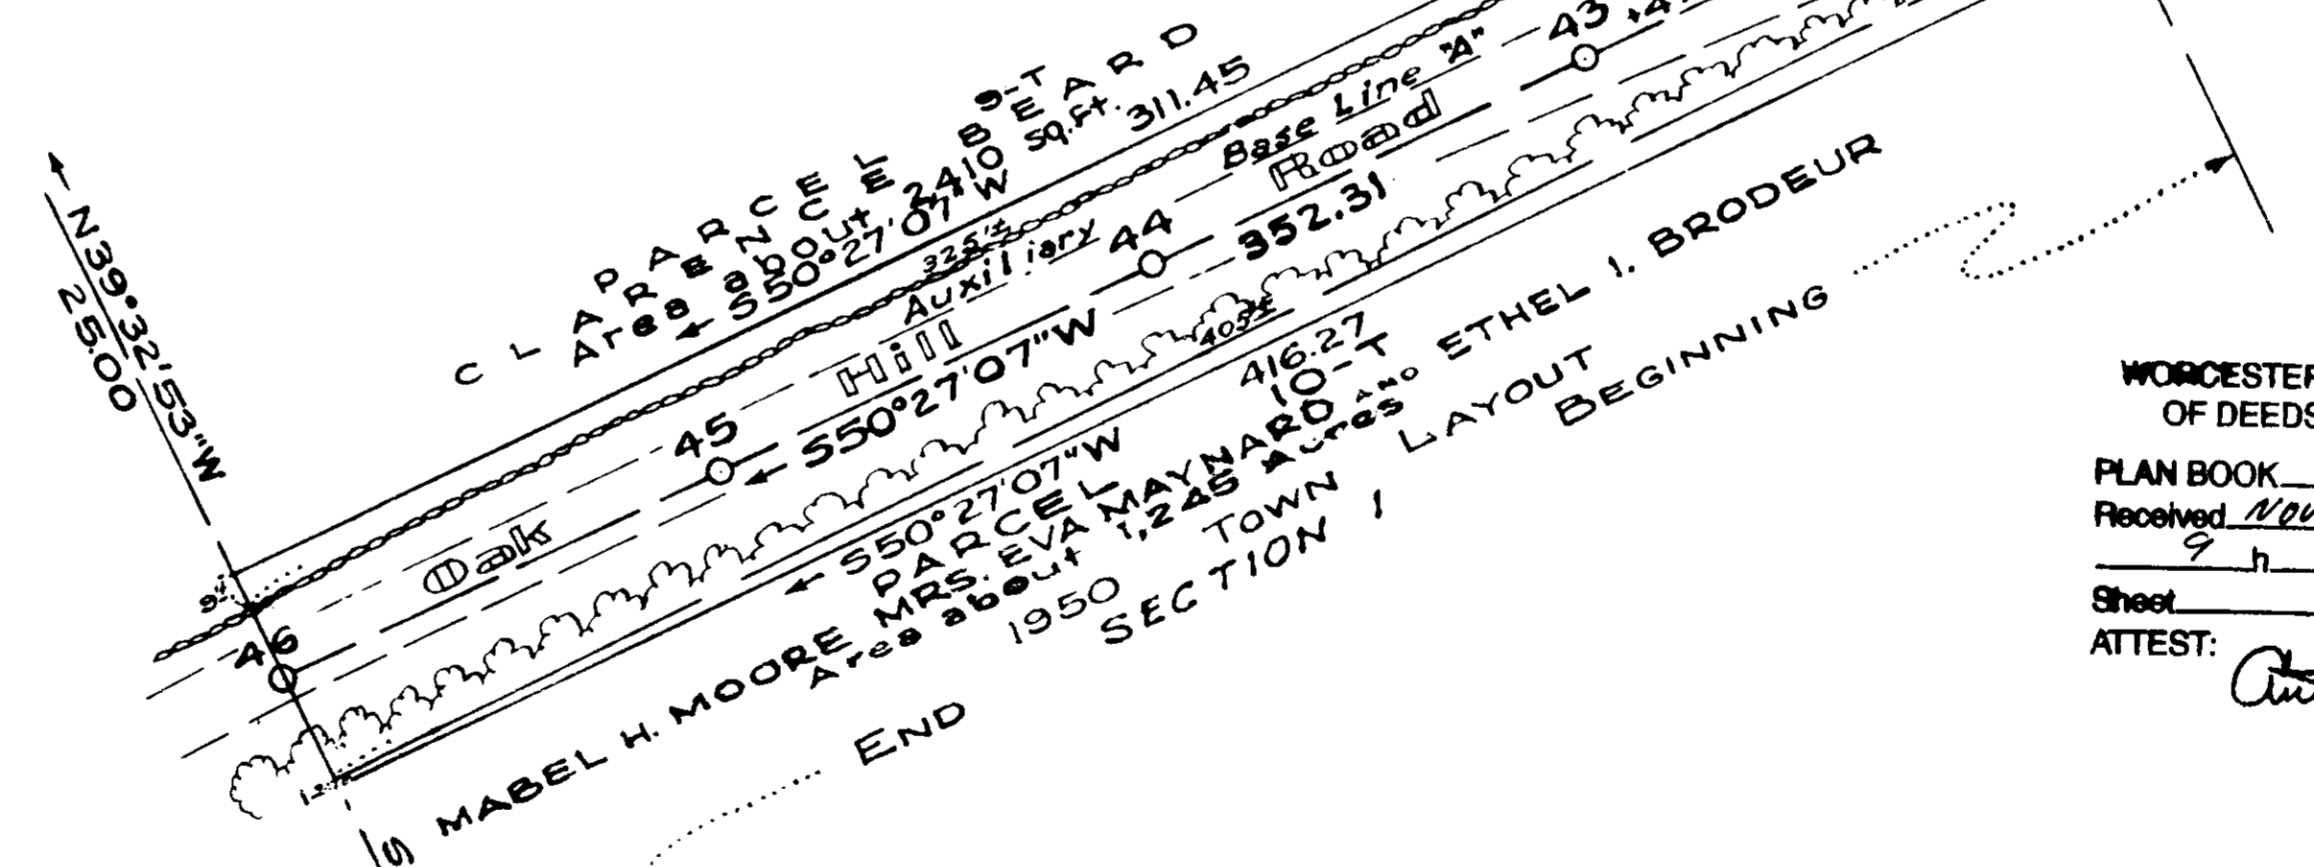 N39°32'53"W
25.00
PARCEL 9-T
CLARENCE BEARD
Area about 2,410 SQ.Ft.
S50°27'07"W 311.45
325'±
Auxiliary Base Line "A"
43
44
45
46
Oak Hill Road
S50°27'07"W 352.31
405'±
S50°27'07"W 416.27
PARCEL 10-T
MABEL H. MOORE MRS. EVA MAYNARD AND ETHEL I. BRODEUR
Area about 1,245 Acres
1950 TOWN LAYOUT
SECTION 1
BEGINNING
END
S
9'±
WORCESTER
OF DEEDS
PLAN BOOK
Received Nov
9 h
Sheet
ATTEST: